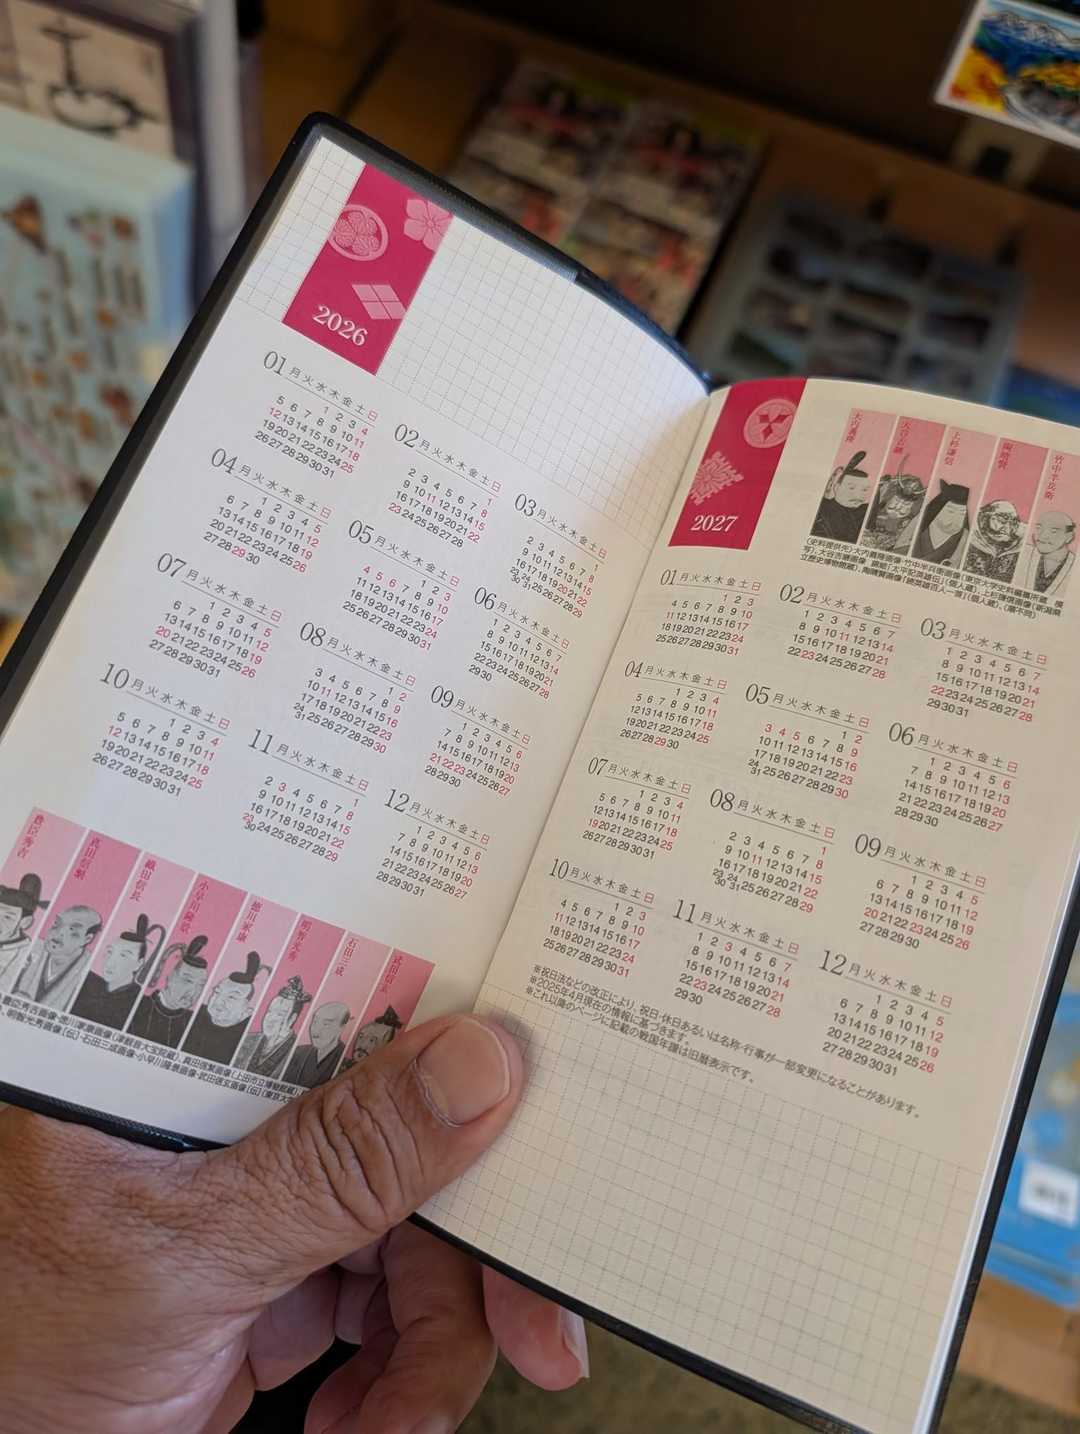 2026
01 月 火 水 木 金 土 日
1 2 3 4
5 6 7 8 9 10 11
12 13 14 15 16 17 18
19 20 21 22 23 24 25
26 27 28 29 30 31
02 月 火 水 木 金 土 日
1
2 3 4 5 6 7 8
9 10 11 12 13 14 15
16 17 18 19 20 21 22
23 24 25 26 27 28
03 月 火 水 木 金 土 日
1
2 3 4 5 6 7 8
9 10 11 12 13 14 15
16 17 18 19 20 21 22
23 24 25 26 27 28 29
30 31
04 月 火 水 木 金 土 日
1 2 3 4 5
6 7 8 9 10 11 12
13 14 15 16 17 18 19
20 21 22 23 24 25 26
27 28 29 30
05 月 火 水 木 金 土 日
1 2 3
4 5 6 7 8 9 10
11 12 13 14 15 16 17
18 19 20 21 22 23 24
25 26 27 28 29 30 31
06 月 火 水 木 金 土 日
1 2 3 4 5 6 7
8 9 10 11 12 13 14
15 16 17 18 19 20 21
22 23 24 25 26 27 28
29 30
07 月 火 水 木 金 土 日
1 2 3 4 5
6 7 8 9 10 11 12
13 14 15 16 17 18 19
20 21 22 23 24 25 26
27 28 29 30 31
08 月 火 水 木 金 土 日
1 2
3 4 5 6 7 8 9
10 11 12 13 14 15 16
17 18 19 20 21 22 23
24 25 26 27 28 29 30
31
09 月 火 水 木 金 土 日
1 2 3 4 5 6
7 8 9 10 11 12 13
14 15 16 17 18 19 20
21 22 23 24 25 26 27
28 29 30
10 月 火 水 木 金 土 日
1 2 3 4
5 6 7 8 9 10 11
12 13 14 15 16 17 18
19 20 21 22 23 24 25
26 27 28 29 30 31
11 月 火 水 木 金 土 日
1
2 3 4 5 6 7 8
9 10 11 12 13 14 15
16 17 18 19 20 21 22
23 24 25 26 27 28 29
30
12 月 火 水 木 金 土 日
1 2 3 4 5 6
7 8 9 10 11 12 13
14 15 16 17 18 19 20
21 22 23 24 25 26 27
28 29 30 31
豊臣秀吉
真田信繁
織田信長
小早川隆景
徳川家康
明智光秀
石田三成
武田信玄
2027
大内義隆
大谷吉継
上杉謙信
陶晴賢
竹中半兵衛
(史料提供先)大内義隆画像・竹中半兵衛画像(東京大学史料編纂所蔵 模
写)、大谷吉継画像 錦絵「太平記英雄伝」(個人蔵)、上杉謙信画像(新潟県
立歴史博物館蔵)、陶晴賢画像「続英雄百人一首」(個人蔵)、(順不同)
01 月 火 水 木 金 土 日
1 2 3
4 5 6 7 8 9 10
11 12 13 14 15 16 17
18 19 20 21 22 23 24
25 26 27 28 29 30 31
02 月 火 水 木 金 土 日
1 2 3 4 5 6 7
8 9 10 11 12 13 14
15 16 17 18 19 20 21
22 23 24 25 26 27 28
03 月 火 水 木 金 土 日
1 2 3 4 5 6 7
8 9 10 11 12 13 14
15 16 17 18 19 20 21
22 23 24 25 26 27 28
29 30 31
04 月 火 水 木 金 土 日
1 2 3 4
5 6 7 8 9 10 11
12 13 14 15 16 17 18
19 20 21 22 23 24 25
26 27 28 29 30
05 月 火 水 木 金 土 日
1 2
3 4 5 6 7 8 9
10 11 12 13 14 15 16
17 18 19 20 21 22 23
24 25 26 27 28 29 30
31
06 月 火 水 木 金 土 日
1 2 3 4 5 6
7 8 9 10 11 12 13
14 15 16 17 18 19 20
21 22 23 24 25 26 27
28 29 30
07 月 火 水 木 金 土 日
1 2 3 4
5 6 7 8 9 10 11
12 13 14 15 16 17 18
19 20 21 22 23 24 25
26 27 28 29 30 31
08 月 火 水 木 金 土 日
1
2 3 4 5 6 7 8
9 10 11 12 13 14 15
16 17 18 19 20 21 22
23 24 25 26 27 28 29
30 31
09 月 火 水 木 金 土 日
1 2 3 4 5
6 7 8 9 10 11 12
13 14 15 16 17 18 19
20 21 22 23 24 25 26
27 28 29 30
10 月 火 水 木 金 土 日
1 2 3
4 5 6 7 8 9 10
11 12 13 14 15 16 17
18 19 20 21 22 23 24
25 26 27 28 29 30 31
11 月 火 水 木 金 土 日
1 2 3 4 5 6 7
8 9 10 11 12 13 14
15 16 17 18 19 20 21
22 23 24 25 26 27 28
29 30
12 月 火 水 木 金 土 日
1 2 3 4 5
6 7 8 9 10 11 12
13 14 15 16 17 18 19
20 21 22 23 24 25 26
27 28 29 30 31
※祝日法などの改正により、祝日・休日あるいは名称・行事が一部変更になることがあります。
※2025年4月現在の情報に基づきます。
※これ以降のページに記載の戦国年譜は旧暦表示です。